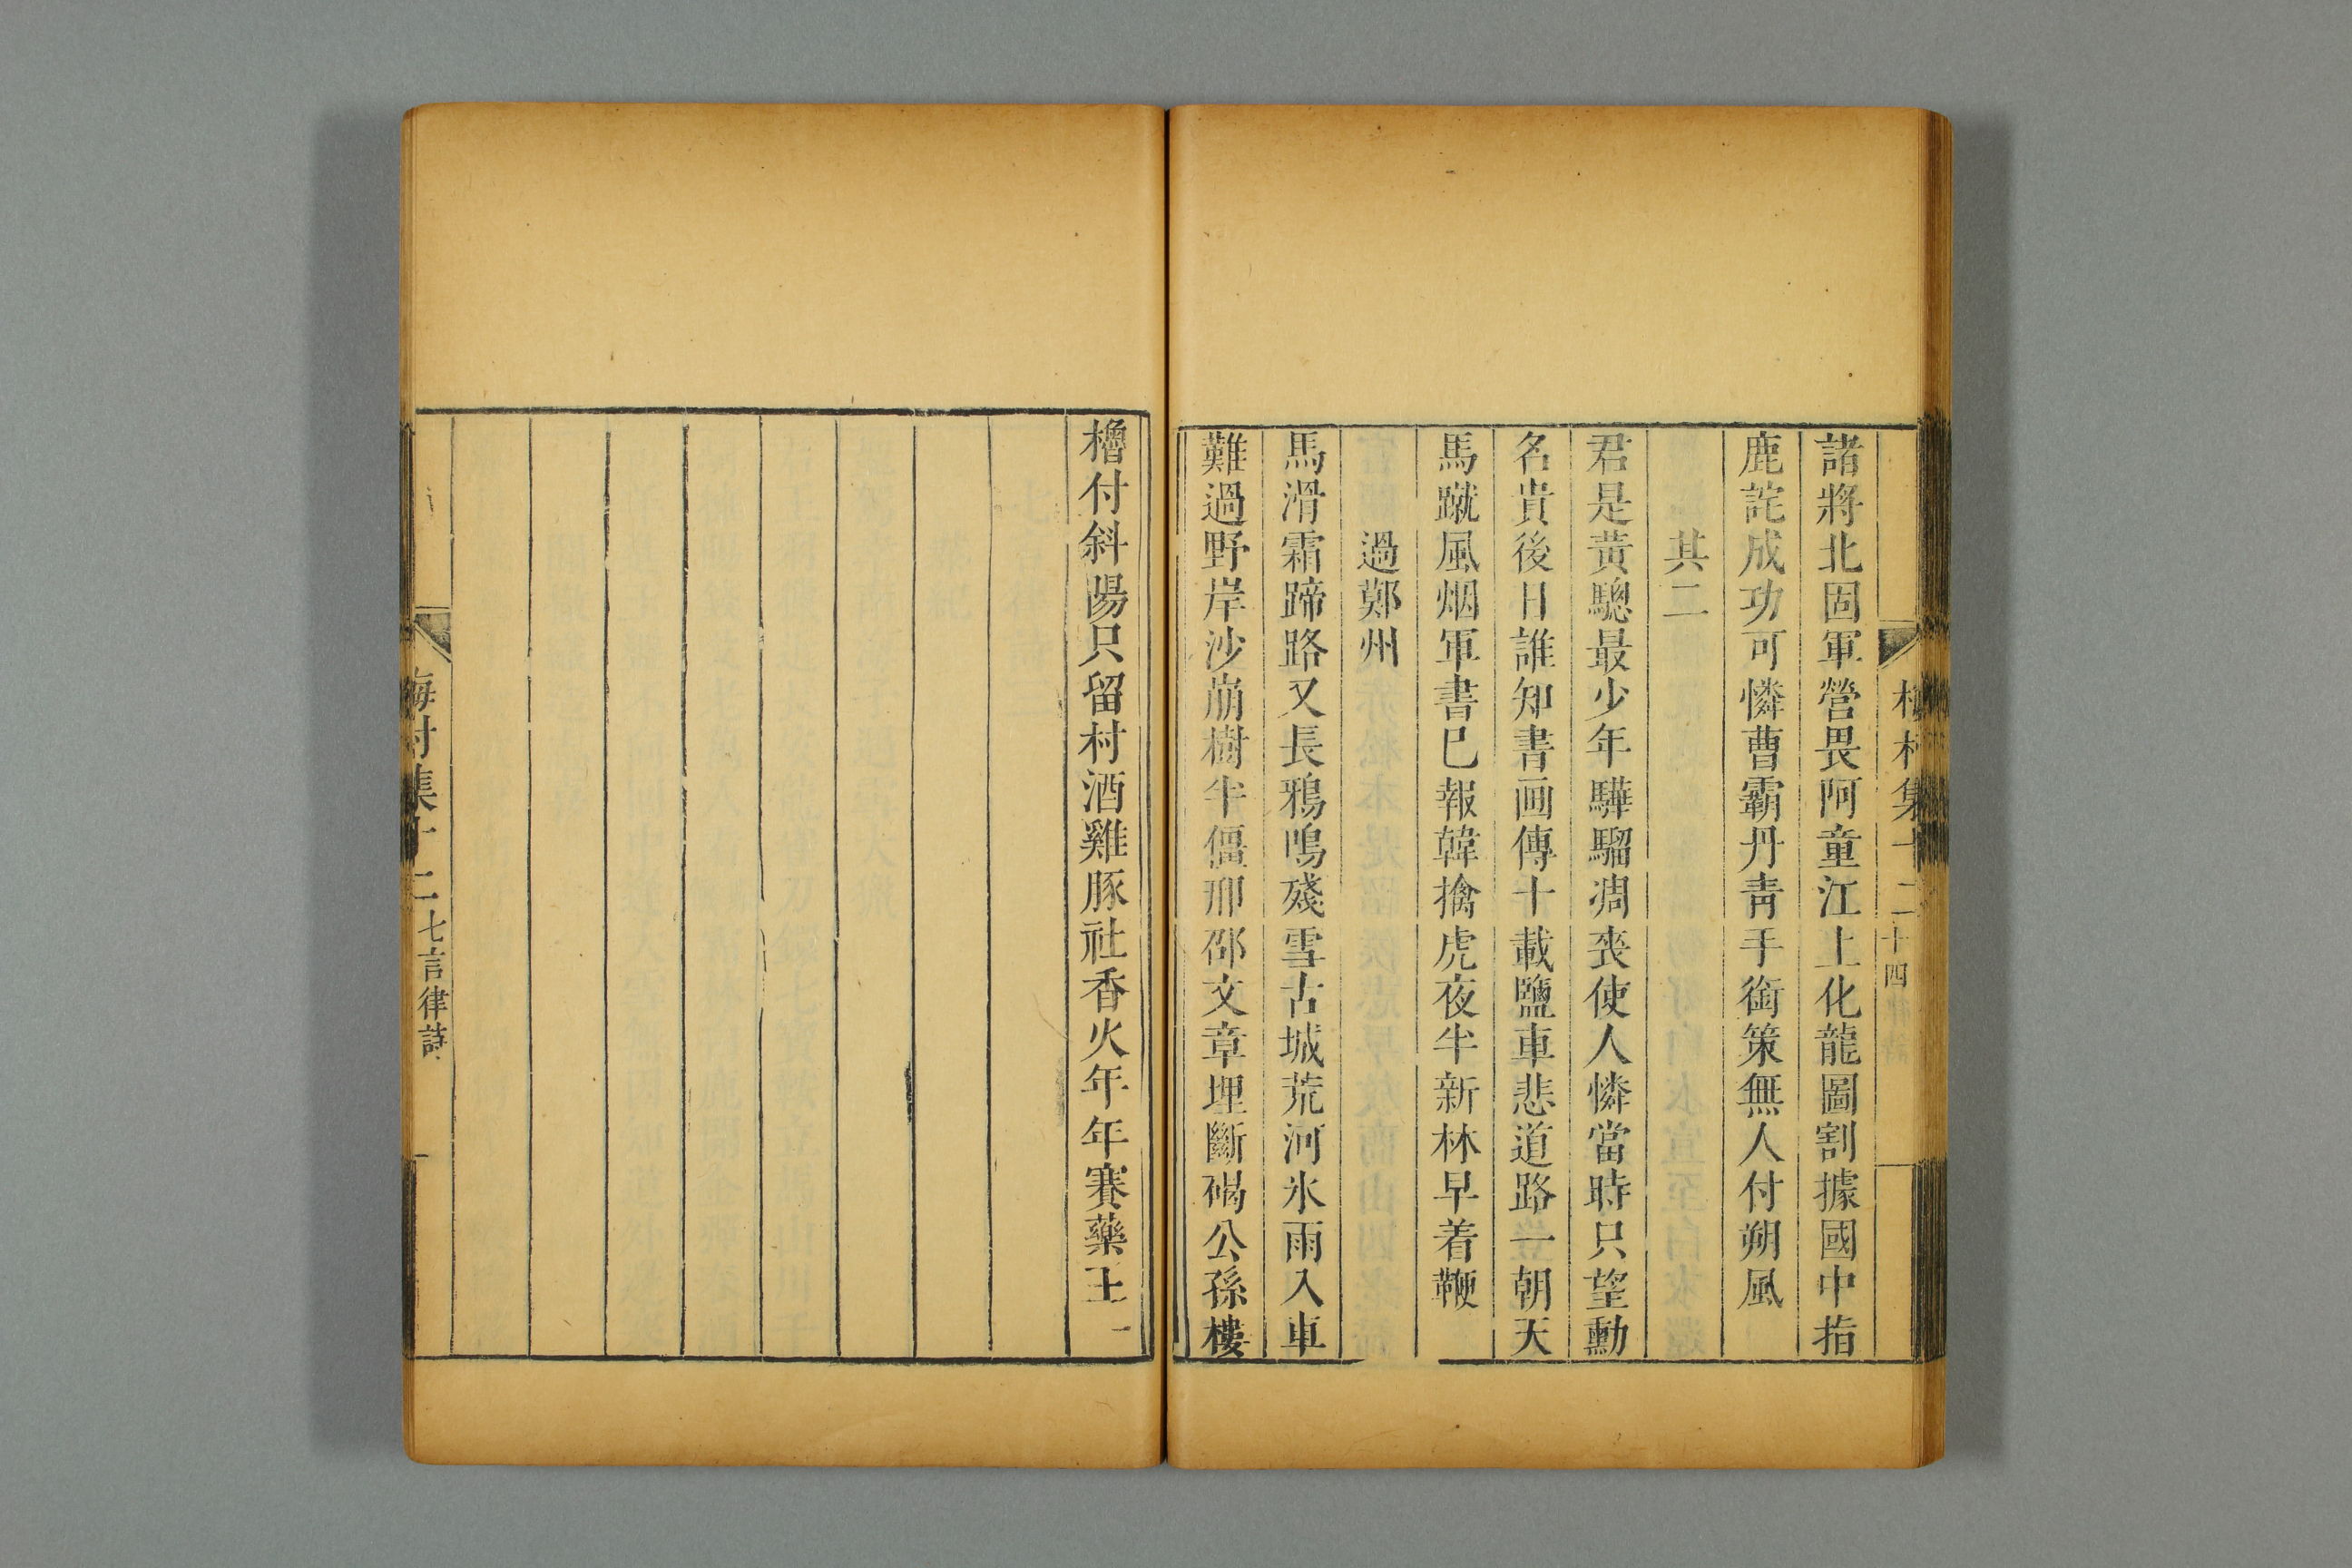 梅村集十二
十四
諸將北固軍營畏阿童江上化龍圖割據國中指
鹿詫成功可憐曹霸丹青手銜策無人付朔風
其二
君是黃驄最少年驊騮凋喪使人憐當時只望勳
名貴後日誰知書画傳十載鹽車悲道路一朝天
馬蹴風烟軍書已報韓擒虎夜半新林早着鞭
過鄭州
馬滑霜蹄路又長鴉鳴殘雪古城荒河氷雨入車
難過野岸沙崩樹半僵邢邵文章埋斷碣公孫樓
櫓付斜陽只留村酒雞豚社香火年年賽藥王
梅村集十二
七言律詩